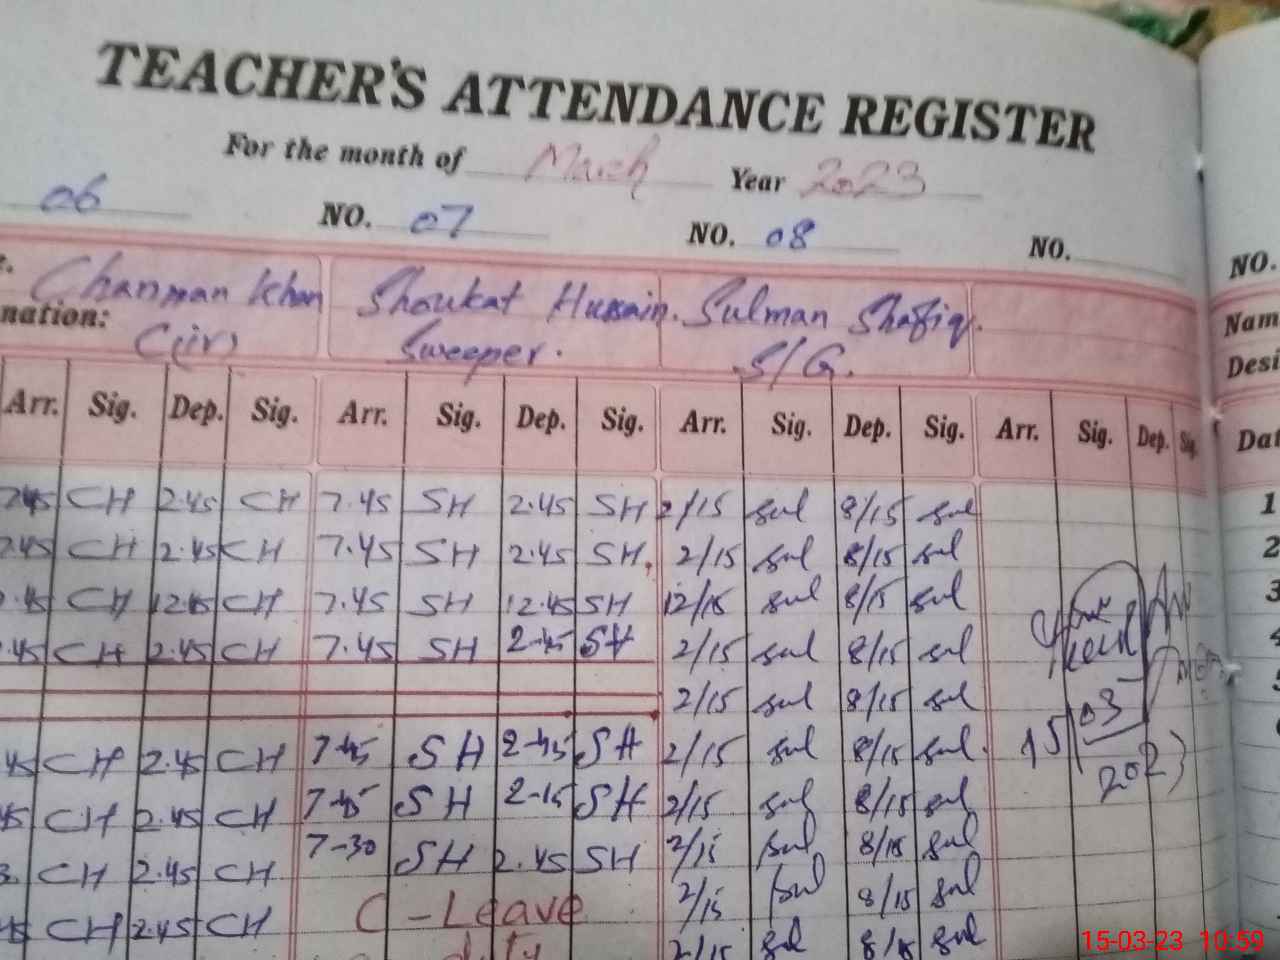 TEACHER'S ATTENDANCE REGISTER
For the month of March Year 2023
06 NO. 07 NO. 08 NO.
Chanman Khan Shoukat Hussain. Sulman Shafiq.
nation: C(ir) Sweeper. S/G.
Arr. Sig. Dep. Sig. Arr. Sig. Dep. Sig. Arr. Sig. Dep. Sig. Arr. Sig. Dep. Sig.
7.45 CH 2.45 CH 7.45 SH 2.45 SH 2/15 sul 8/15 sul
7.45 CH 2.45 CH 7.45 SH 2.45 SH. 2/15 sul 8/15 sul
CH 12.45 CH 7.45 SH 12.45 SH 12/15 sul 8/15 sul
.45 CH 2.45 CH 7.45 SH 2-45 SH 2/15 sul 8/15 sul
2/15 sul 8/15 sul
45 CH 2.45 CH 7-45 SH 2-45 SH 2/15 sul 8/15 sul.
45 CH 2.45 CH 7-45 SH 2-15 SH 2/15 sul 8/15 sul
CH 2.45 CH 7-30 SH 2.45 SH 2/15 sul 8/15 sul
45 CH 2.45 CH C-Leave 2/15 sul 8/15 sul
duty 2/15 sul 8/15 sul
15/03/2023
NO.
Nam
Desi
Dat
1
2
3
15-03-23 10:59